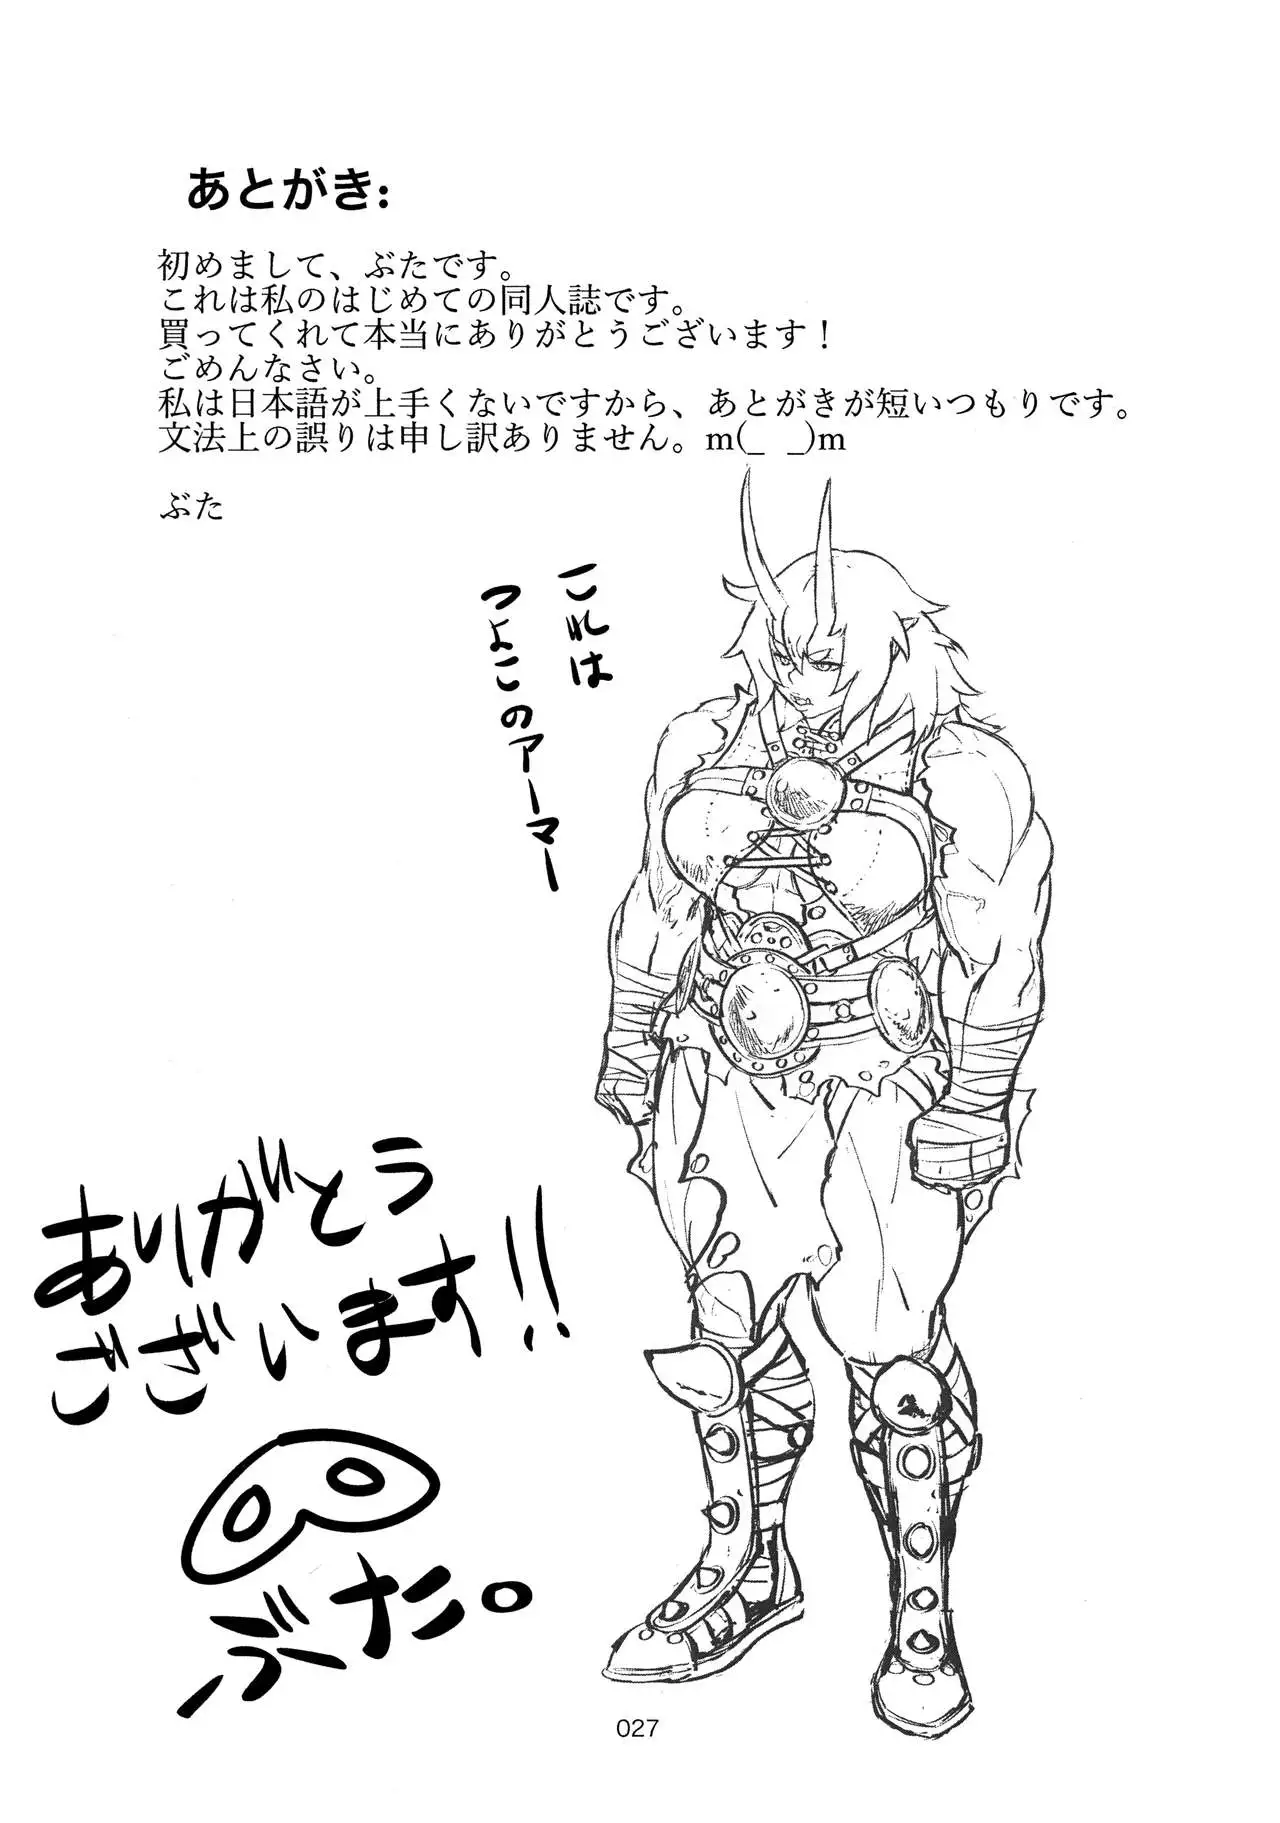 あとがき:
初めまして、ぶたです。
これは私のはじめての同人誌です。
買ってくれて本当にありがとうございます！
ごめんなさい。
私は日本語が上手くないですから、あとがきが短いつもりです。
文法上の誤りは申し訳ありません。m(_ _)m
ぶた
これは
つよこのアーマー
ありがとう
ございます!!
ぶた。
027